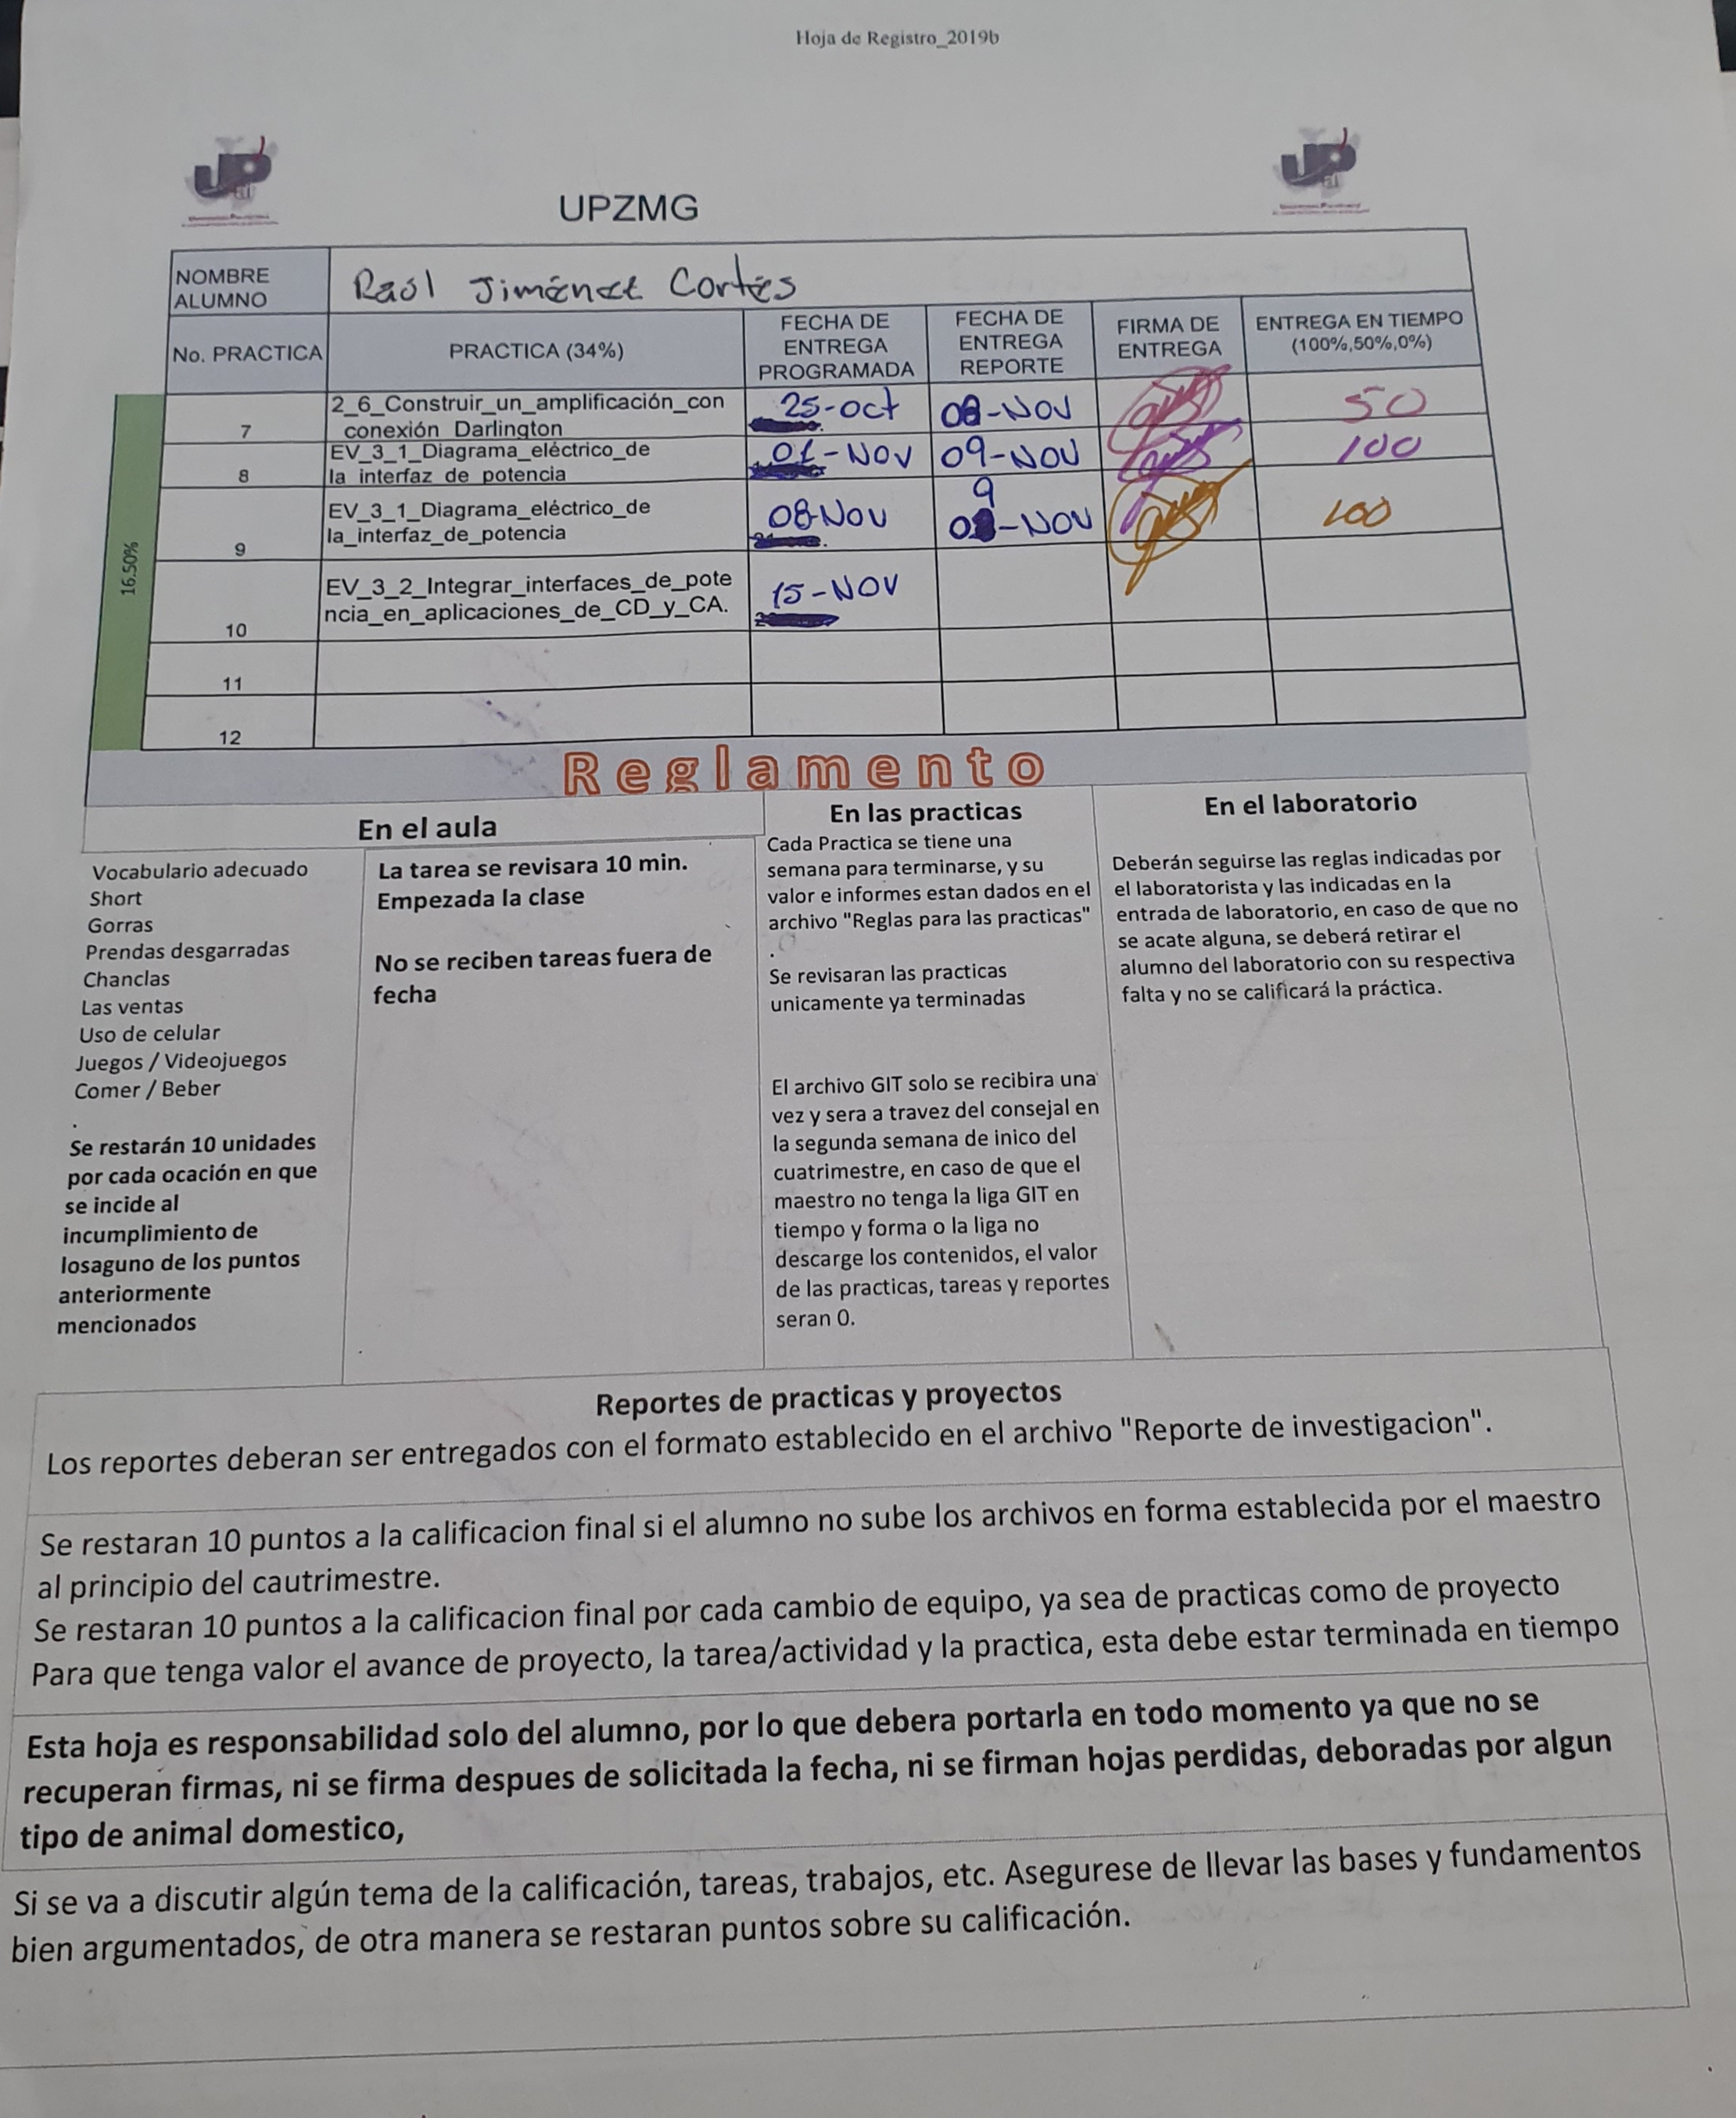 Hoja de Registro_2019b
UPZMG
NOMBRE ALUMNO
Raúl Jiménez Cortés
No. PRACTICA
PRACTICA (34%)
FECHA DE ENTREGA PROGRAMADA
FECHA DE ENTREGA REPORTE
FIRMA DE ENTREGA
ENTREGA EN TIEMPO (100%,50%,0%)
16.50%
7
2_6_Construir_un_amplificación_con
conexión_Darlington
25-oct
08-NOV
50
8
EV_3_1_Diagrama_eléctrico_de
la_interfaz_de_potencia
01-NOV
09-NOV
100
9
EV_3_1_Diagrama_eléctrico_de
la_interfaz_de_potencia
08-NOV
9
0 -NOV
100
10
EV_3_2_Integrar_interfaces_de_pote
ncia_en_aplicaciones_de_CD_y_CA.
15-NOV
11
12
Reglamento
En el aula
Vocabulario adecuado
Short
Gorras
Prendas desgarradas
Chanclas
Las ventas
Uso de celular
Juegos / Videojuegos
Comer / Beber
.
Se restarán 10 unidades
por cada ocación en que
se incide al
incumplimiento de
losaguno de los puntos
anteriormente
mencionados
La tarea se revisara 10 min.
Empezada la clase
No se reciben tareas fuera de
fecha
En las practicas
Cada Practica se tiene una
semana para terminarse, y su
valor e informes estan dados en el
archivo "Reglas para las practicas"
.
Se revisaran las practicas
unicamente ya terminadas
El archivo GIT solo se recibira una
vez y sera a travez del consejal en
la segunda semana de inico del
cuatrimestre, en caso de que el
maestro no tenga la liga GIT en
tiempo y forma o la liga no
descarge los contenidos, el valor
de las practicas, tareas y reportes
seran 0.
En el laboratorio
Deberán seguirse las reglas indicadas por
el laboratorista y las indicadas en la
entrada de laboratorio, en caso de que no
se acate alguna, se deberá retirar el
alumno del laboratorio con su respectiva
falta y no se calificará la práctica.
Reportes de practicas y proyectos
Los reportes deberan ser entregados con el formato establecido en el archivo "Reporte de investigacion".
Se restaran 10 puntos a la calificacion final si el alumno no sube los archivos en forma establecida por el maestro
al principio del cautrimestre.
Se restaran 10 puntos a la calificacion final por cada cambio de equipo, ya sea de practicas como de proyecto
Para que tenga valor el avance de proyecto, la tarea/actividad y la practica, esta debe estar terminada en tiempo
Esta hoja es responsabilidad solo del alumno, por lo que debera portarla en todo momento ya que no se
recuperan firmas, ni se firma despues de solicitada la fecha, ni se firman hojas perdidas, deboradas por algun
tipo de animal domestico,
Si se va a discutir algún tema de la calificación, tareas, trabajos, etc. Asegurese de llevar las bases y fundamentos
bien argumentados, de otra manera se restaran puntos sobre su calificación.